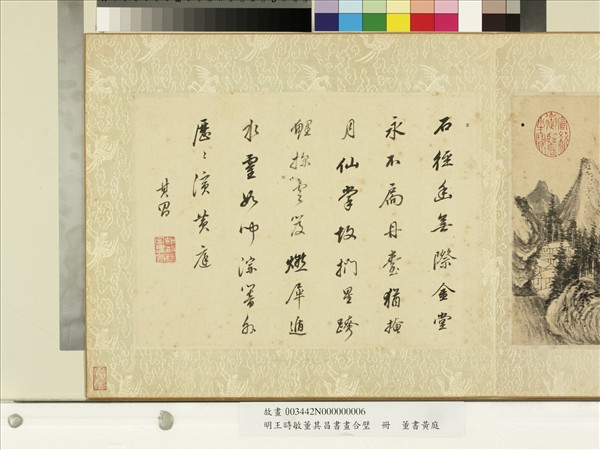 石徑幽無際金堂
永不扃丹臺猶掩
月仙掌故捫星跨
鯉探雲笈燃犀遁
水靈如聞深外
歷〻演黃庭
其昌
故畫 003442N000000006
明王時敏董其昌書畫合璧 冊 董書黃庭